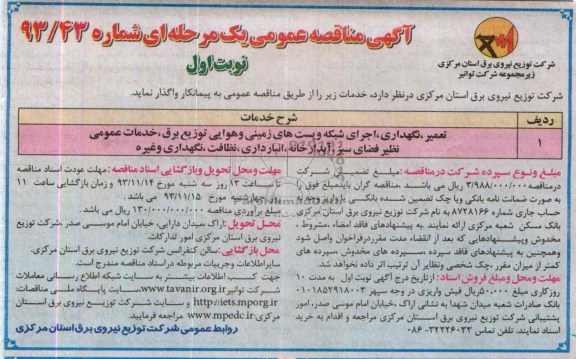 آگهی مناقصه عمومی یک مرحله ای شماره ۹۳/۴۳
نوبت اول
شرکت توزیع نیروی برق استان مرکزی
زیرمجموعه شرکت توانیر
شرکت توزیع نیروی برق استان مرکزی درنظر دارد، خدمات زیر را از طریق مناقصه عمومی به پیمانکار واگذار نماید.
ردیف
شرح خدمات
۱
تعمیر، نگهداری، اجرای شبکه و پست های زمینی و هوایی توزیع برق، خدمات عمومی
نظیر فضای سبز، آبدارخانه، انبارداری، نظافت، نگهداری وغیره
مبلغ و نوع سپرده شرکت در مناقصه: مبلغ تضمین شرکت
درمناقصه ۳/۹۸۸/۰۰۰/۰۰۰ ریال می باشد. مناقصه گران بایدمبلغ فوق را
به صورت ضمانت نامه بانکی ویا چک تضمین شده بانکی یا واریز وجه به
حساب جاری شماره ۸۷۲۸۱۶۶ به نام شرکت توزیع نیروی برق استان مرکزی
بانک مسکن شعبه مرکزی ارائه نمایند. به پیشنهادهای فاقد امضاء، مشروط،
مخدوش وپیشنهادهایی که بعد از انقضاء مدت مقرر درفراخوان واصل شود
وهمچنین به پیشنهادهای فاقد سپرده، سپرده های مخدوش، سپرده های
کمتر از میزان مقرر، چک شخصی ونظایر آن ترتیب اثر داده نخواهد شد.
مهلت ومحل ومبلغ فروش اسناد: ازتاریخ درج آگهی نوبت اول به مدت ۱۰
روزکاری مبلغ ۵۰۰/۰۰۰ ریال فیش واریزی در وجه سپهر ۰۱۰۱۸۵۲۹۱۸۰۰۳
بانک صادرات شعبه میدان شهدا به نشانی اراک، خیابان امام موسی صدر، امور
پشتیبانی شرکت توزیع نیروی برق استان مرکزی مراجعه و اقدام به خرید
اسناد نمایند. تلفن تماس ۳۲۲۲۶۰۳۳-۰۸۶
مهلت ومحل تحویل وبازگشایی اسناد مناقصه: مهلت عودت اسناد مناقصه
تا ساعت ۱۳ روز سه شنبه مورخ ۹۳/۱۱/۱۴ و زمان بازگشایی ساعت ۱۱
چهارشنبه مورخ ۹۳/۱۱/۱۵ می باشد.
مبلغ برآوردی مناقصه ۱۳۰/۰۰۰/۰۰۰/۰۰۰ ریال می باشد.
محل تحویل: اراک، میدان دارایی، خیابان امام موسی صدر، شرکت توزیع
نیروی برق استان مرکزی امور تدارکات.
محل بازگشایی: سالن کنفرانس شرکت توزیع نیروی برق استان مرکزی.
سایراطلاعات وجزییات مربوطه در اسناد مناقصه مندرج است.
جهت کسب اطلاعات بیشتر به سایت شبکه اطلاع رسانی معاملات
شرکت توانیر www.tavanir.org.ir، سایت پایگاه ملی مناقصات:
http://iets.mporg.ir و سایت شرکت توزیع نیروی برق استان
مرکزی: www.mpedc.ir مراجعه فرمایید.
روابط عمومی شرکت توزیع نیروی برق استان مرکزی